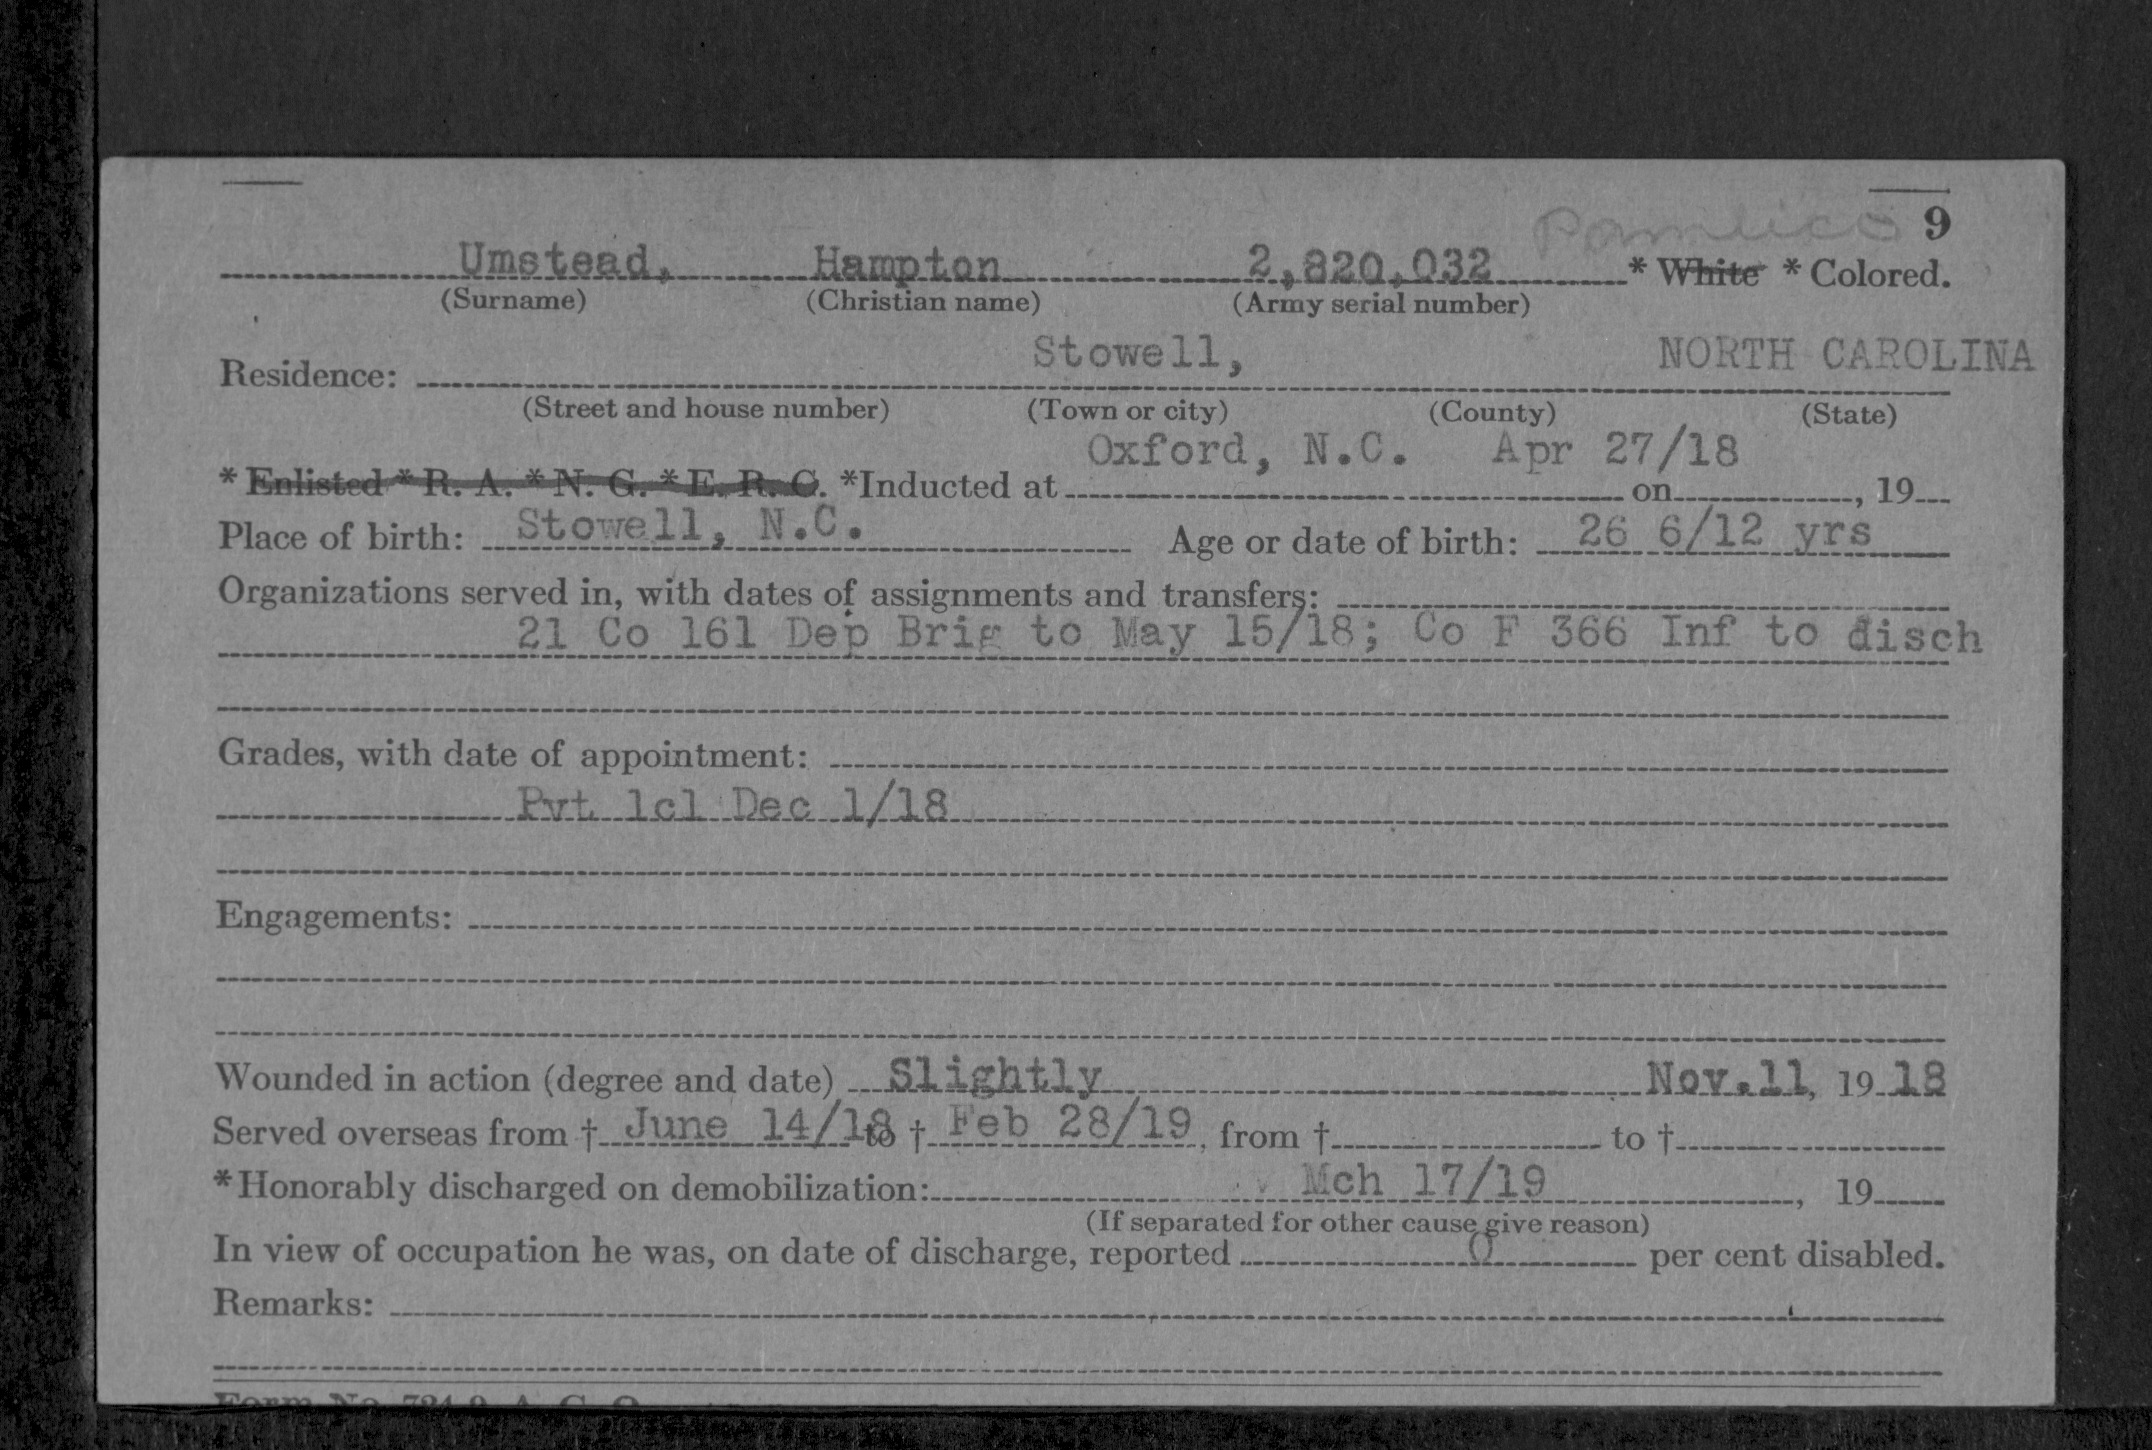 Pamlico 9
Umstead, Hampton 2,820,032 * White * Colored.
(Surname) (Christian name) (Army serial number)
Stowell, NORTH CAROLINA
Residence:
(Street and house number) (Town or city) (County) (State)
Oxford, N.C. Apr 27/18
* Enlisted * R. A. * N. G. * E. R. C. *Inducted at on , 19
Place of birth: Stowell, N.C. Age or date of birth: 26 6/12 yrs
Organizations served in, with dates of assignments and transfers:
21 Co 161 Dep Brig to May 15/18; Co F 366 Inf to disch
Grades, with date of appointment:
Pvt 1cl Dec 1/18
Engagements:
Wounded in action (degree and date) Slightly Nov.11, 19 18
Served overseas from † June 14/18 to † Feb 28/19, from † to †
*Honorably discharged on demobilization: Mch 17/19 , 19
(If separated for other cause give reason)
In view of occupation he was, on date of discharge, reported 0 per cent disabled.
Remarks:
Form No. 724-9, A. G. O.